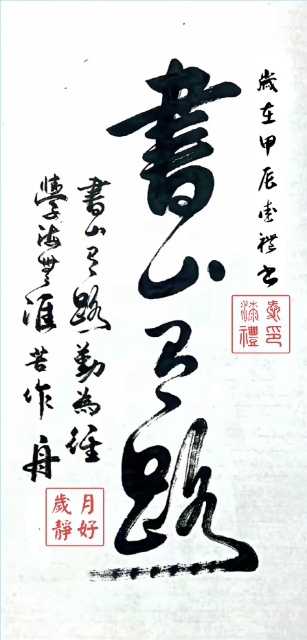 歲在甲辰
書山有路
書山有路勤為徑
學海無涯苦作舟
月好
歲靜